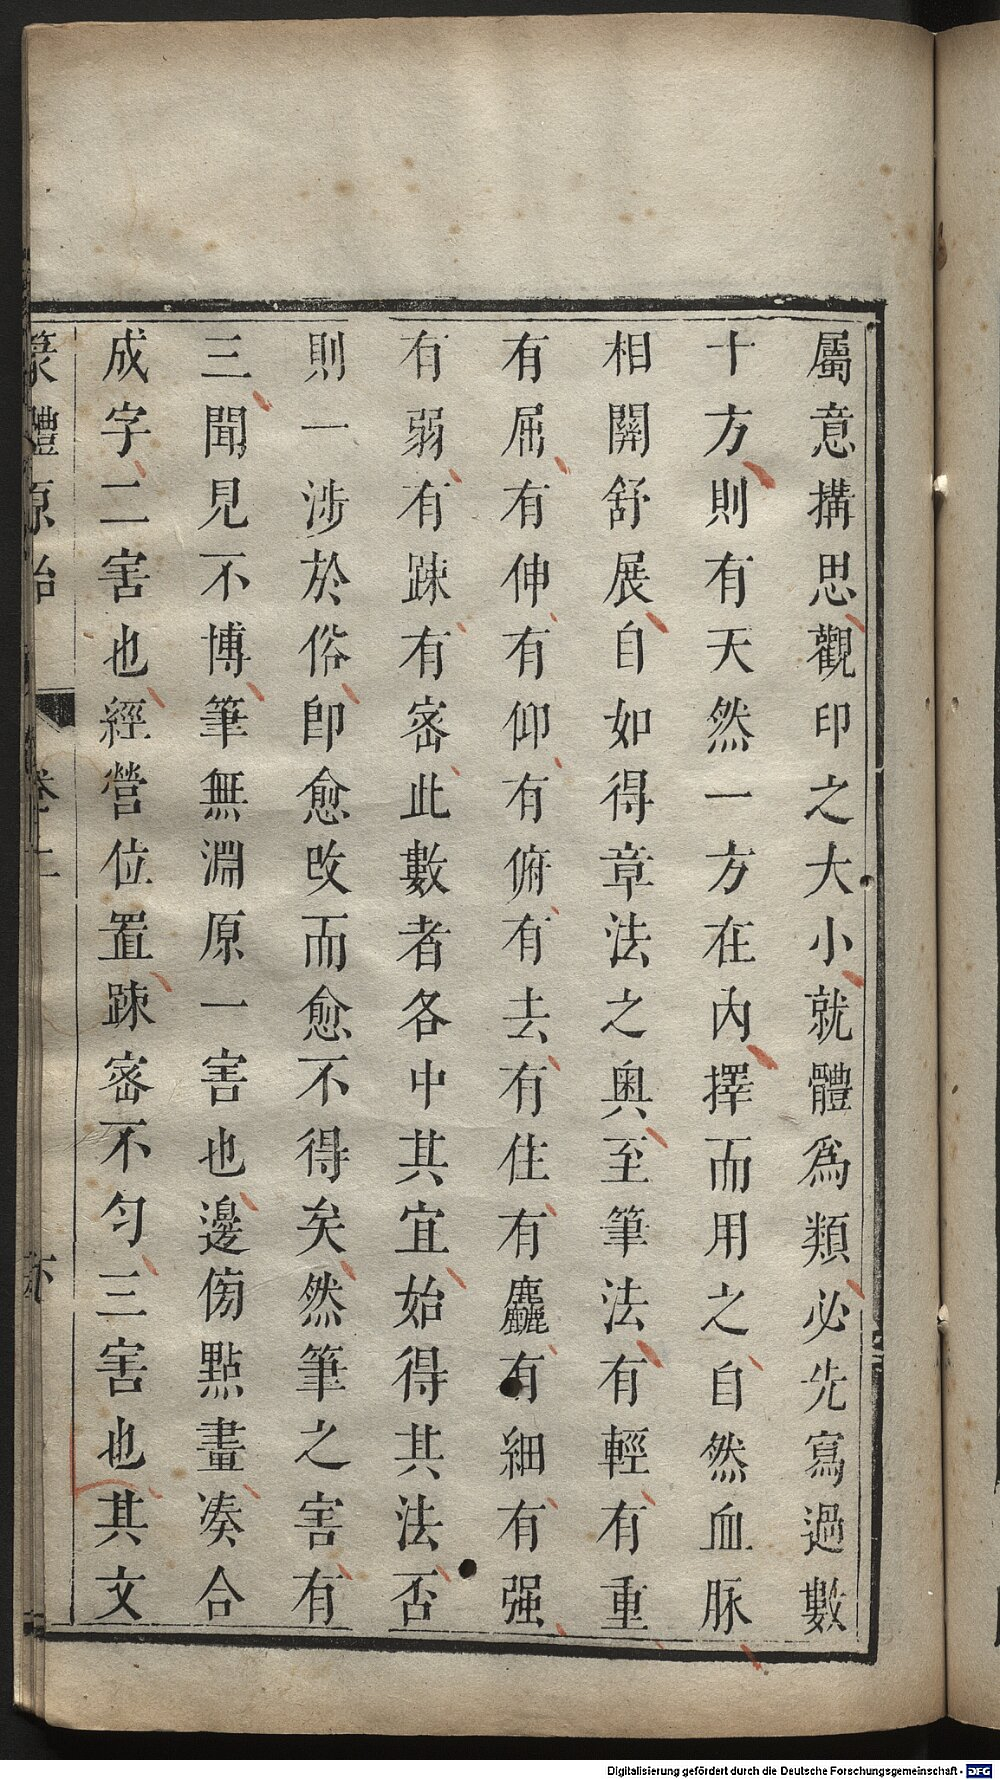 屬意搆思觀印之大小就體爲類必先寫過數
十方則有天然一方在內擇而用之自然血脉
相關舒展自如得章法之奥至筆法有輕有重
有屈有伸有仰有俯有去有住有麤有細有强
有弱有踈有宻此數者各中其宜始得其法否
則一涉於俗卽愈改而愈不得矣然筆之害有
三聞見不博筆無淵原一害也邊傍點畫凑合
成字二害也經營位置踈宻不匀三害也其文
篆體原始 卷上
Digitalisierung gefördert durch die Deutsche Forschungsgemeinschaft - DFG